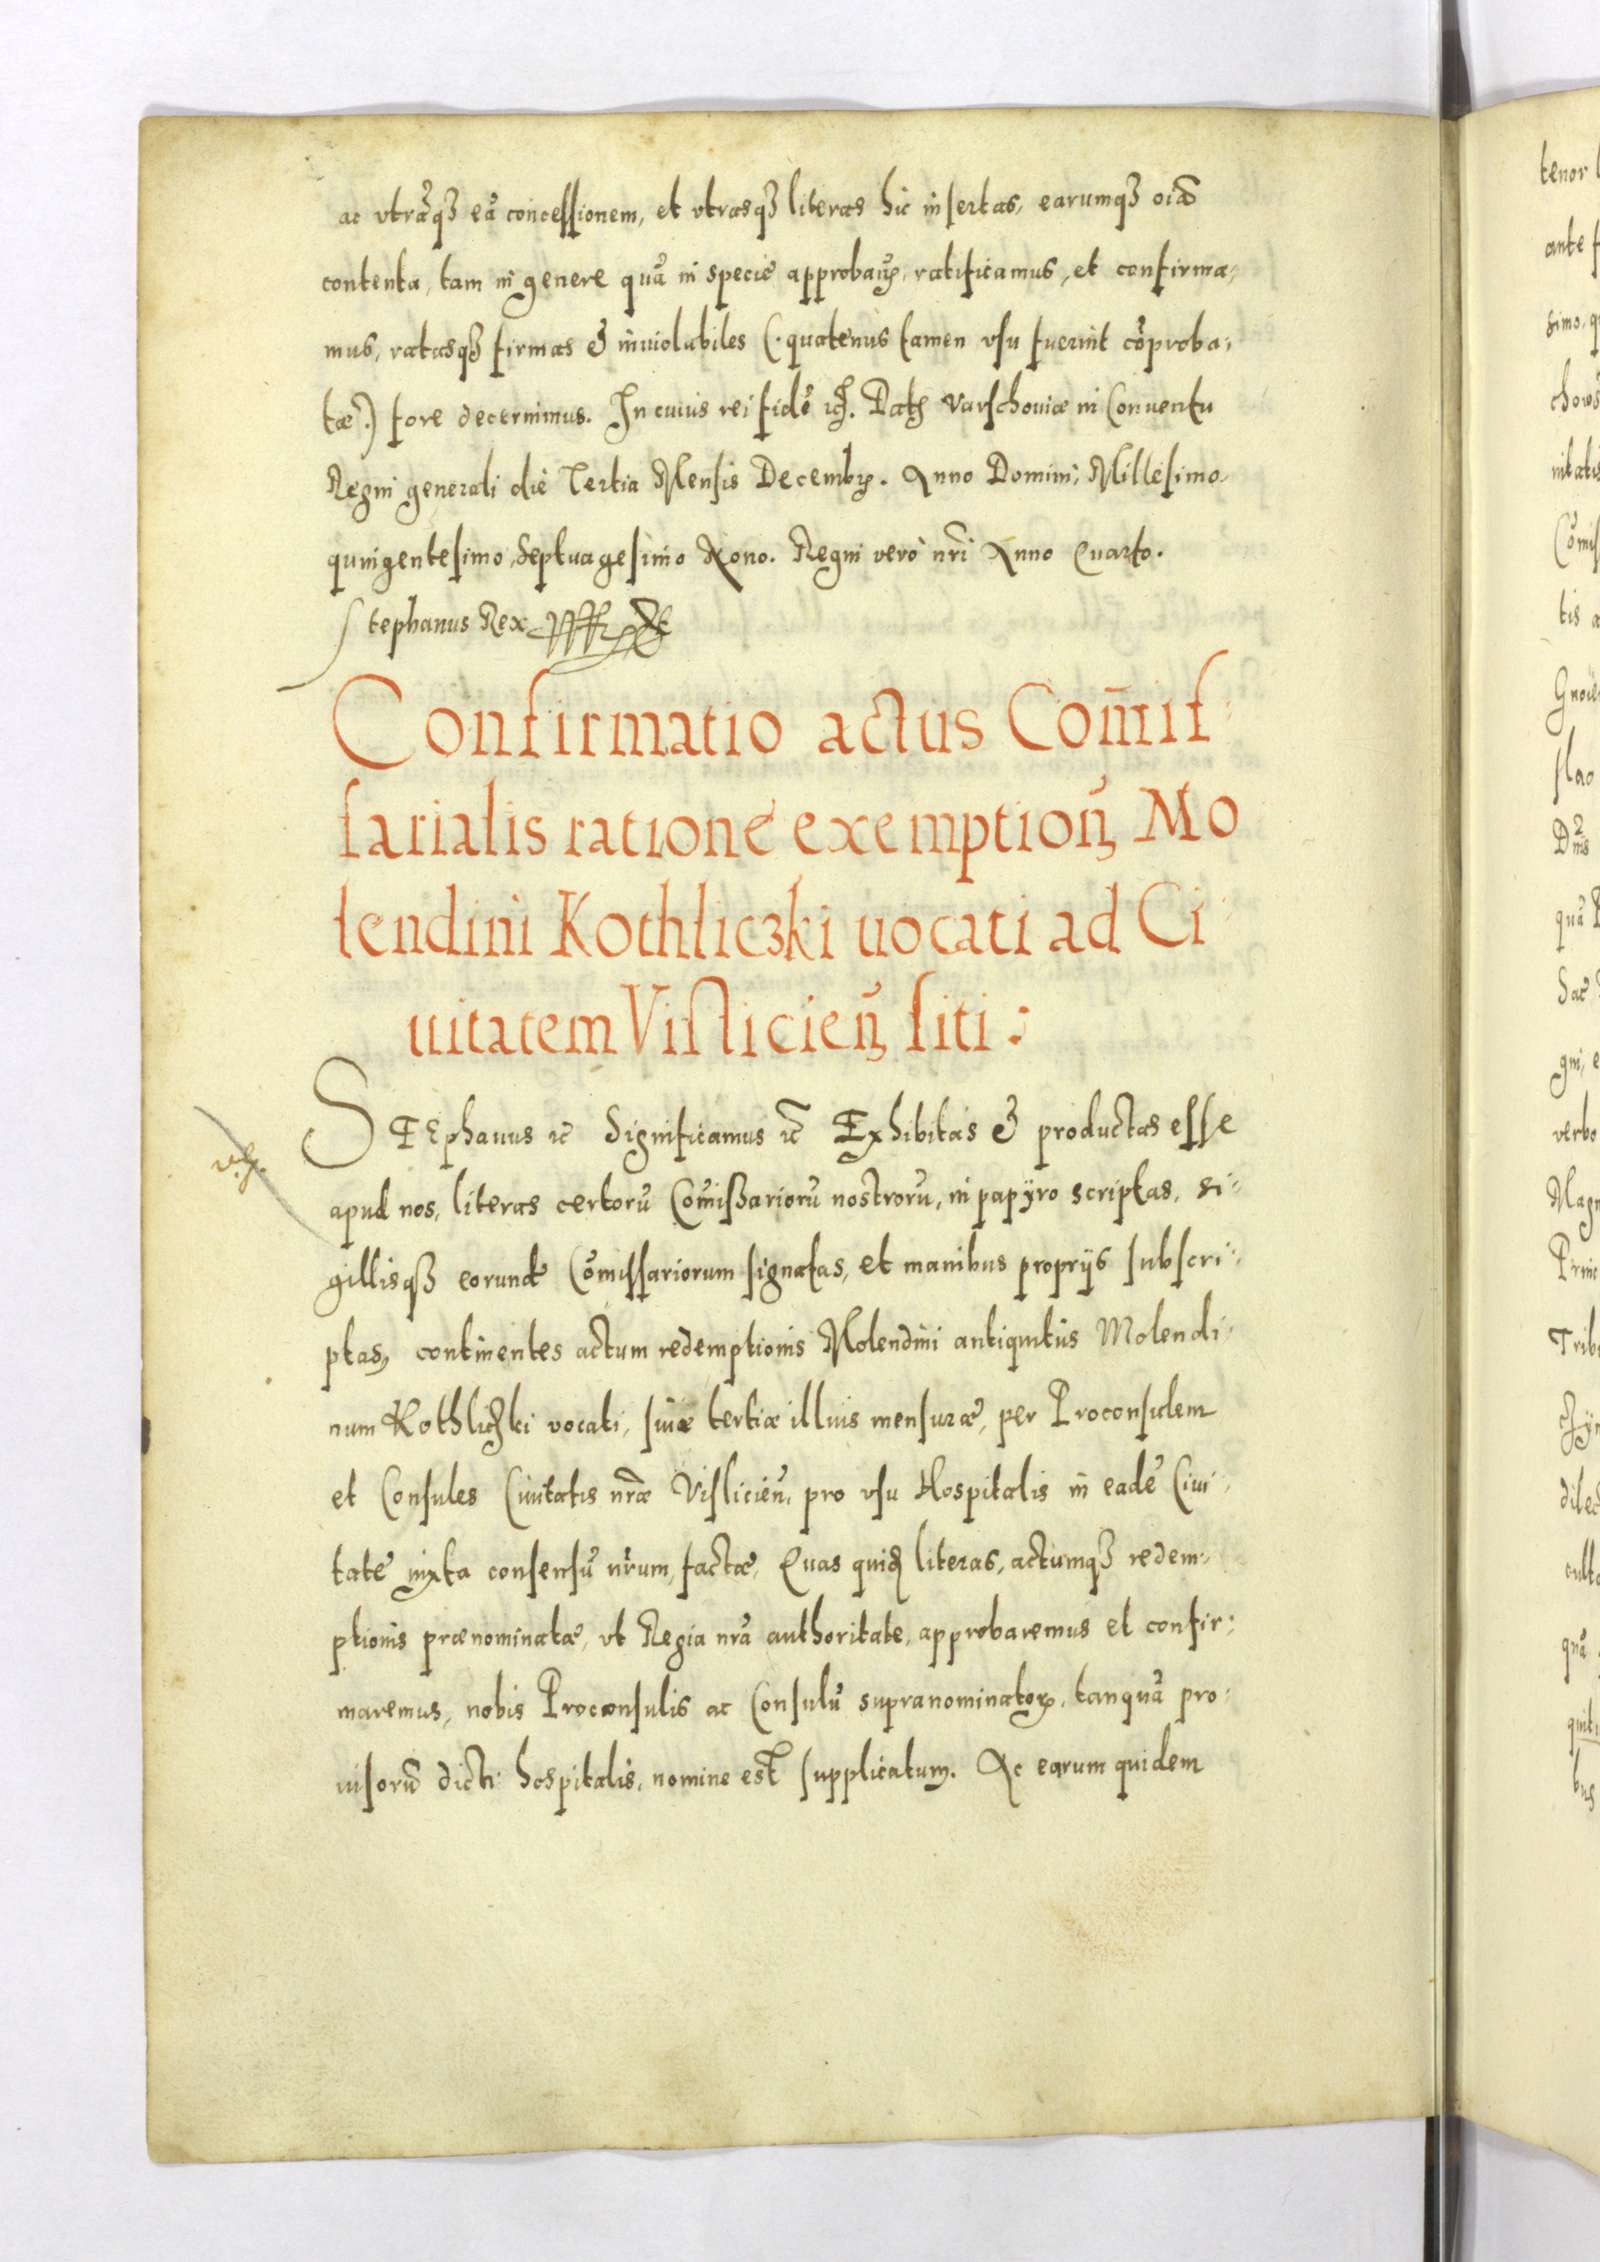 ac vtrãqȝ eã concessionem, et vtrasqȝ literas hic insertas, earumqȝ oiã
contenta, tam in genere quã in specie approbamꝰ, ratificamus, et confirma,
mus, ratasqȝ firmas & inuiolabiles (. quatenus tamen vsu fuerint cõproba,
tæ.) fore decernimus. In cuius rei fidẽ Datȝ Varschouiæ in Conuentu
Regni generali die Tertia Mensis Decembrꝭ. Anno Domini, Millesimo
quingentesimo, Septuagesimo Nono. Regni verò nr̃i Anno Quarto.
Stephanus Rex
Confirmatio actus Com̃iſ
ſarialis ratione exemptionꝭ Mo
lendini Kothliczki uocati ad Ci
uitatem Viſlicienꝭ ſiti:
STEphanus ic̃ Significamus ic̃ Exhibitas & productas esse
apud nos, literas certorũ Com̃issariorũ nostrorũ, in papyro scriptas, si
gillisqȝ eorundẽ Com̃issariorum signatas, et manibus proprijs subscri
ptas, continentes actum redemptionis Molendini antiquitus Molendi
num Kothliczki vocati, siuæ tertiæ illius mensuræ, per Proconsulem
et Consules Ciuitatis nr̃æ Visliciẽn, pro vsu Hospitalis in eadẽ Ciui
tate iuxta consensũ nr̃um, factæ, Quas quidȝ literas, actumqȝ redem
ptionis prænominatæ, vt Regia nr̃a authoritate, approbaremus et confir:
maremus, nobis Proconsulis ac Consulũ supranominatorꝝ, tanquã pro
uisorũ dicti hospitalis, nomine est supplicatum. Ac earum quidem
tenor
ante
simo, q
tis a
verbo